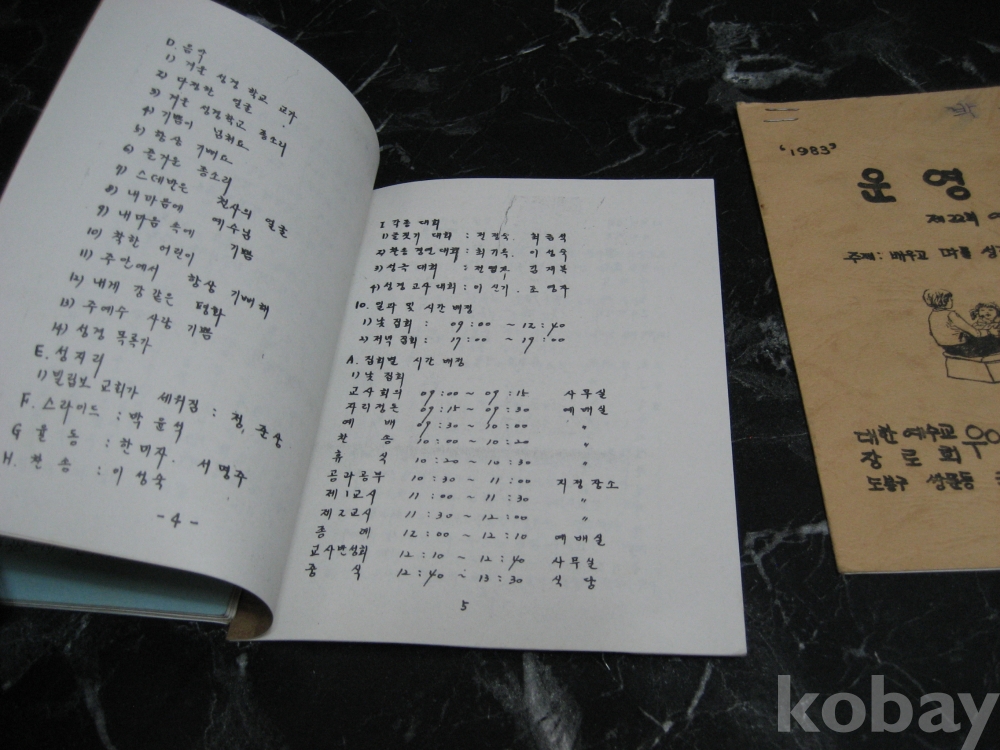 D. 음악
1) 겨울 성경 학교 교가
2) 다정한 얼굴
3) 겨울 성경학교 종소리
4) 기쁨이 넘쳐요
5) 항상 기뻐요
6) 즐거운 종소리
7) 스데반은 천사의 얼굴
8) 내마음에 예수님
9) 내마음 속에 기쁨
10) 착한 어린이
11) 주안에서 항상 기뻐해
12) 내게 강같은 평화
13) 주예수 사랑 기쁨
14) 성경 목록가
E. 성지리
1) 빌립보 교회가 세워짐 : 정, 준상
F. 스라이드 : 박윤석
G 율동 : 한미자. 서명주
H. 찬송 : 이성숙
- 4 -
I 각종 대회
1) 대회 :
2) 찬송 경연 대회 : 최기옥. 이성숙
3) 성극 대회 :
4) 성경 고사 대회 : 이신기. 조영자
10. 일과 및 시간 배정
1) 낮 집회 : 09:00 ~ 12:40
2) 저녁 집회 : 17:00 ~ 19:00
A. 집회별 시간 배정
1) 낮 집회
교사회의 09:00 ~ 09:15 사무실
자리정돈 09:15 ~ 09:30 예배실
예배 09:30 ~ 10:00 〃
찬송 10:00 ~ 10:20 〃
휴식 10:20 ~ 10:30 〃
공과공부 10:30 ~ 11:00 지정장소
제1교시 11:00 ~ 11:30 〃
제2교시 11:30 ~ 12:00 〃
종례 12:00 ~ 12:10 예배실
교사반성회 12:10 ~ 12:40 사무실
중식 12:40 ~ 13:30 식당
5
'1983'
제22회
주제: 배우고
kobay